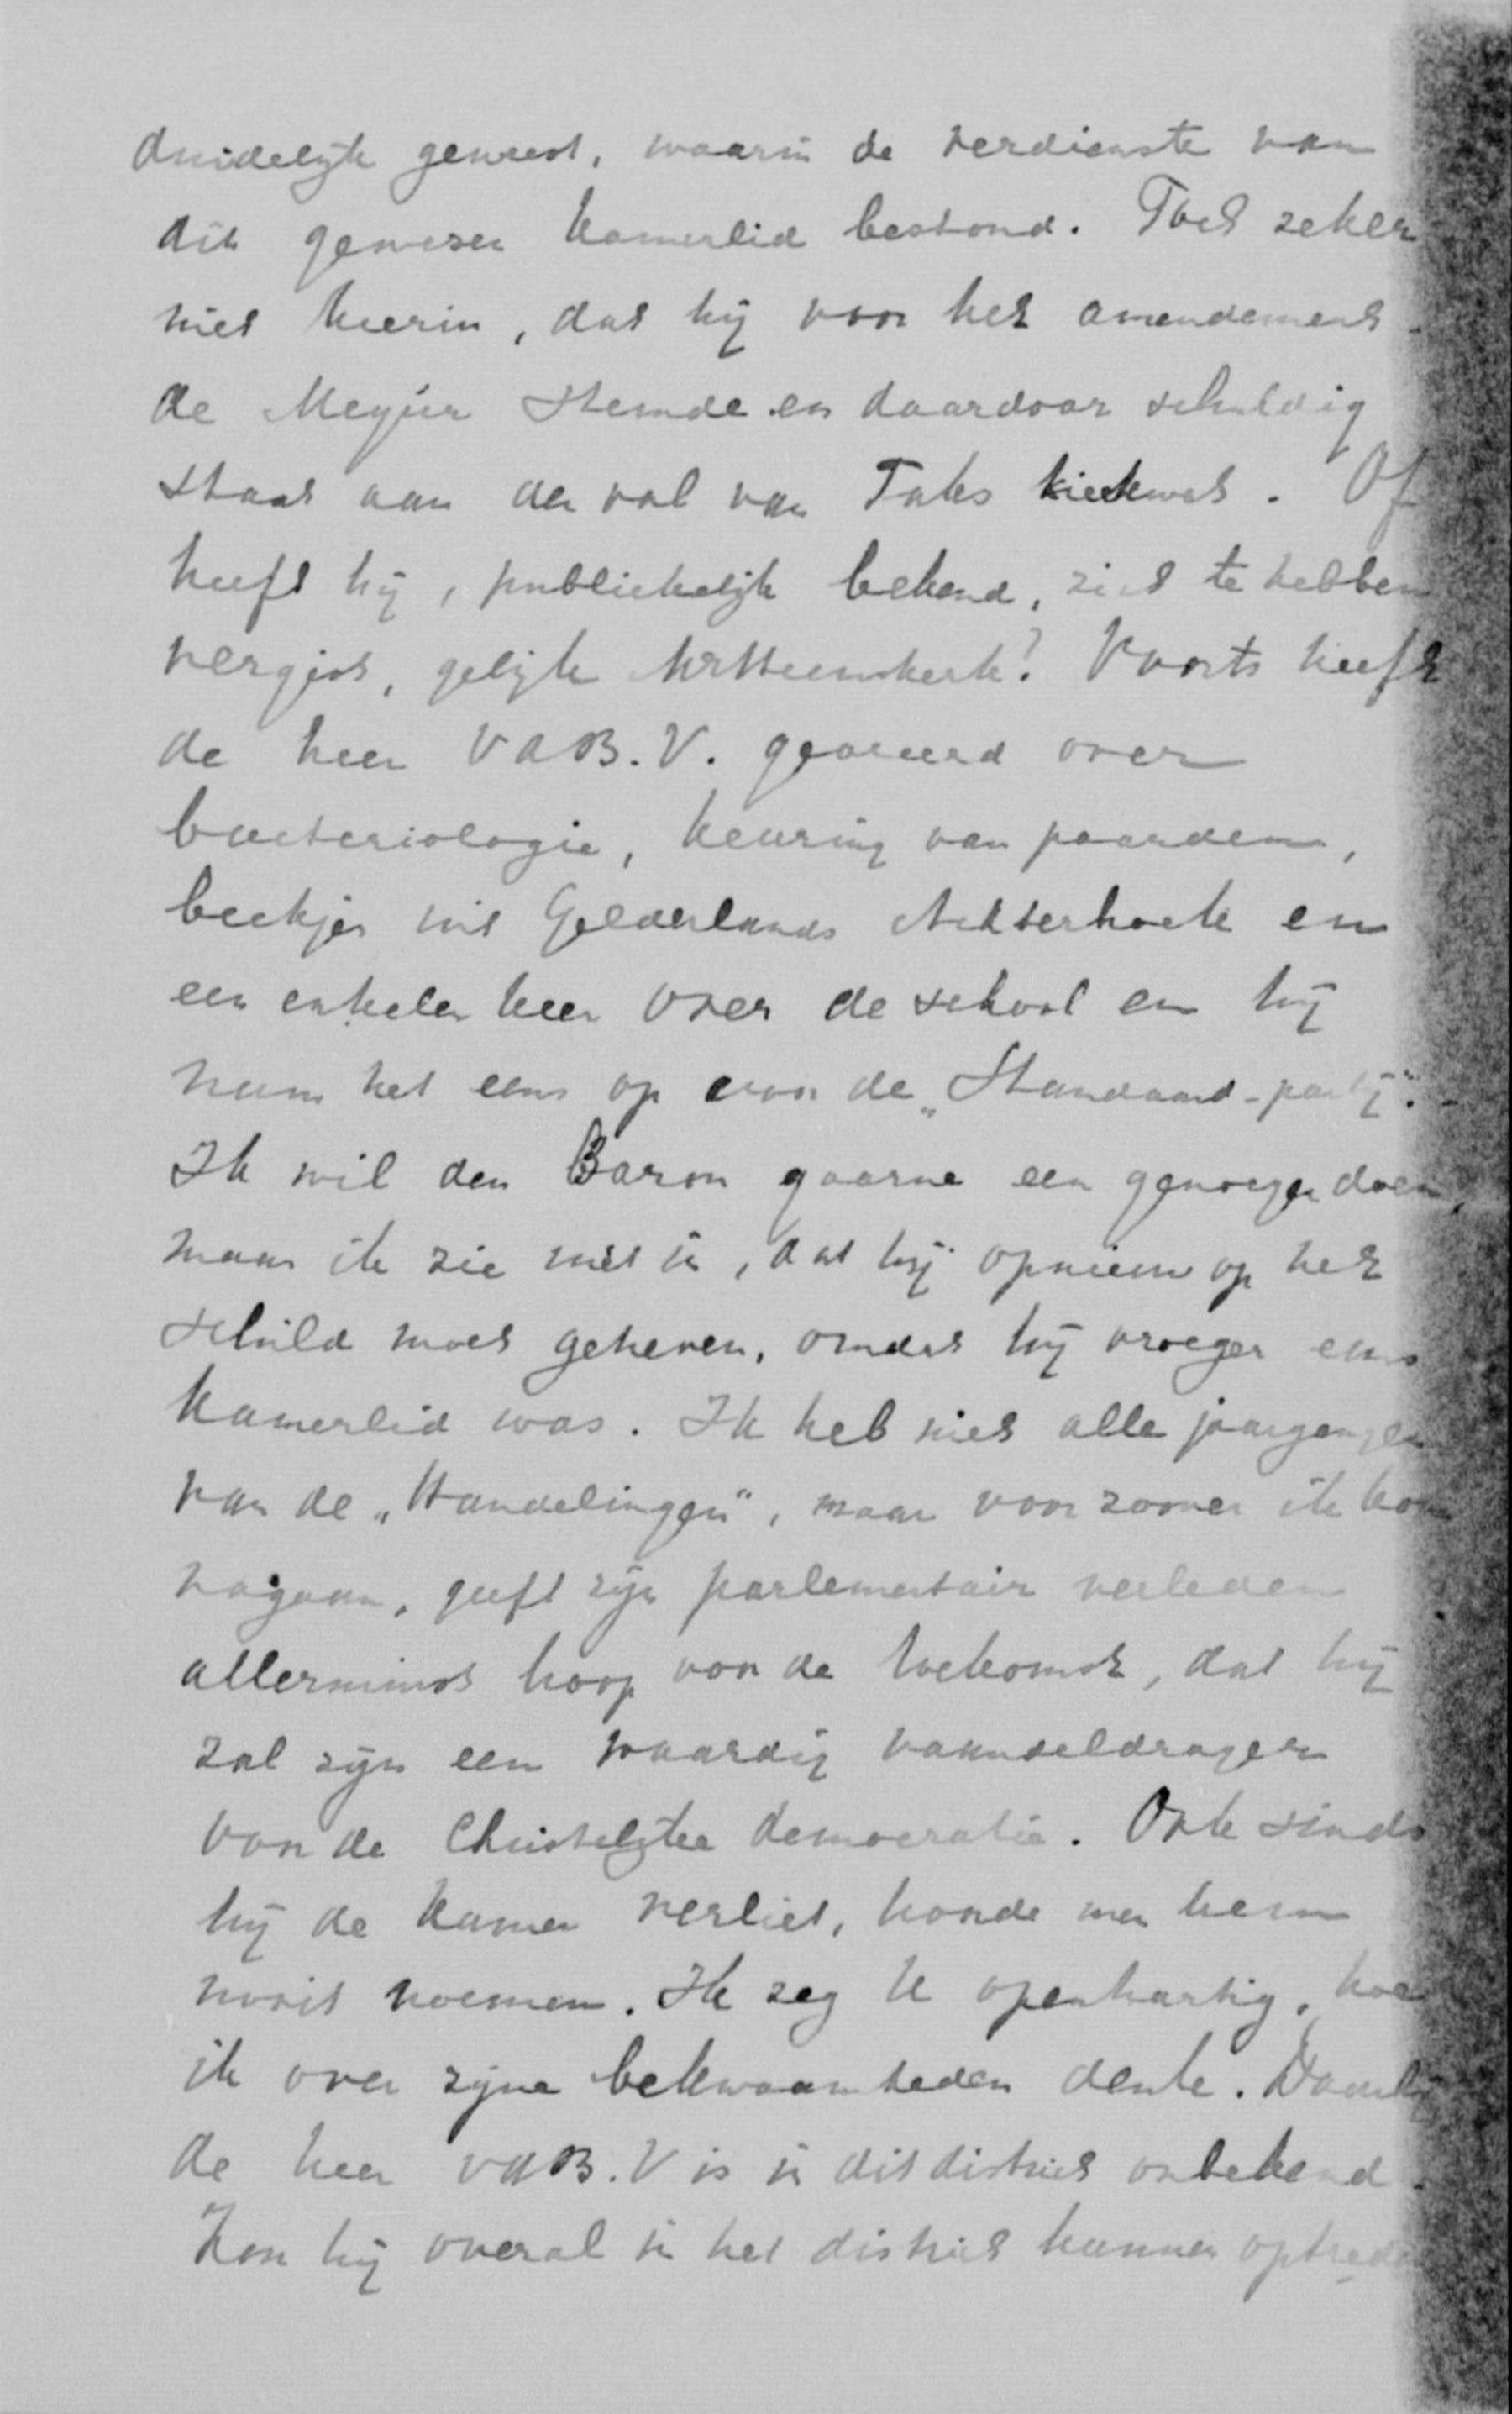 duidelijk geweest, waarin de verdienste van
dit gewezen kamerlid bestond. Toch zeker
niet hierin, dat hij voor het amendement
de Meyier stemde en daardoor schuldig
staat aan den val van Taks kieswet. Of
heeft hij, publiekelijk bekend, zich te hebben
vergist, gelijk Mr Heemskerk? Voorts heeft
de heer VdB.V. georeerd over
bacteriologie, keuring van paarden,
beekjes uit Gelderlands Achterhoek en
een enkelen keer over de school en hij
nam het eens op voor de „Standaard-partij".
Ik wil den Baron gaarne een genoegen doen,
maar ik zie niet in, dat hij opnieuw op het
schild moet geheven, omdat hij vroeger eens
kamerlid was. Ik heb niet alle jaargangen
van de „Handelingen", maar voor zoover ik kon
nagaan, geeft zijn parlementair verleden
allerminst hoop voor de toekomst, dat hij
zal zijn een waardig vaandeldrager
voor de Christelijke democratie. Ook sinds
hij de kamer verliet, hoorde men hem
nooit noemen. Ik zeg U openhartig, hoe
ik over zijne bekwaamheden denk. Daarbij
de heer VdB.V is in dit district onbekend.
Kon hij overal in het district kunnen optreden